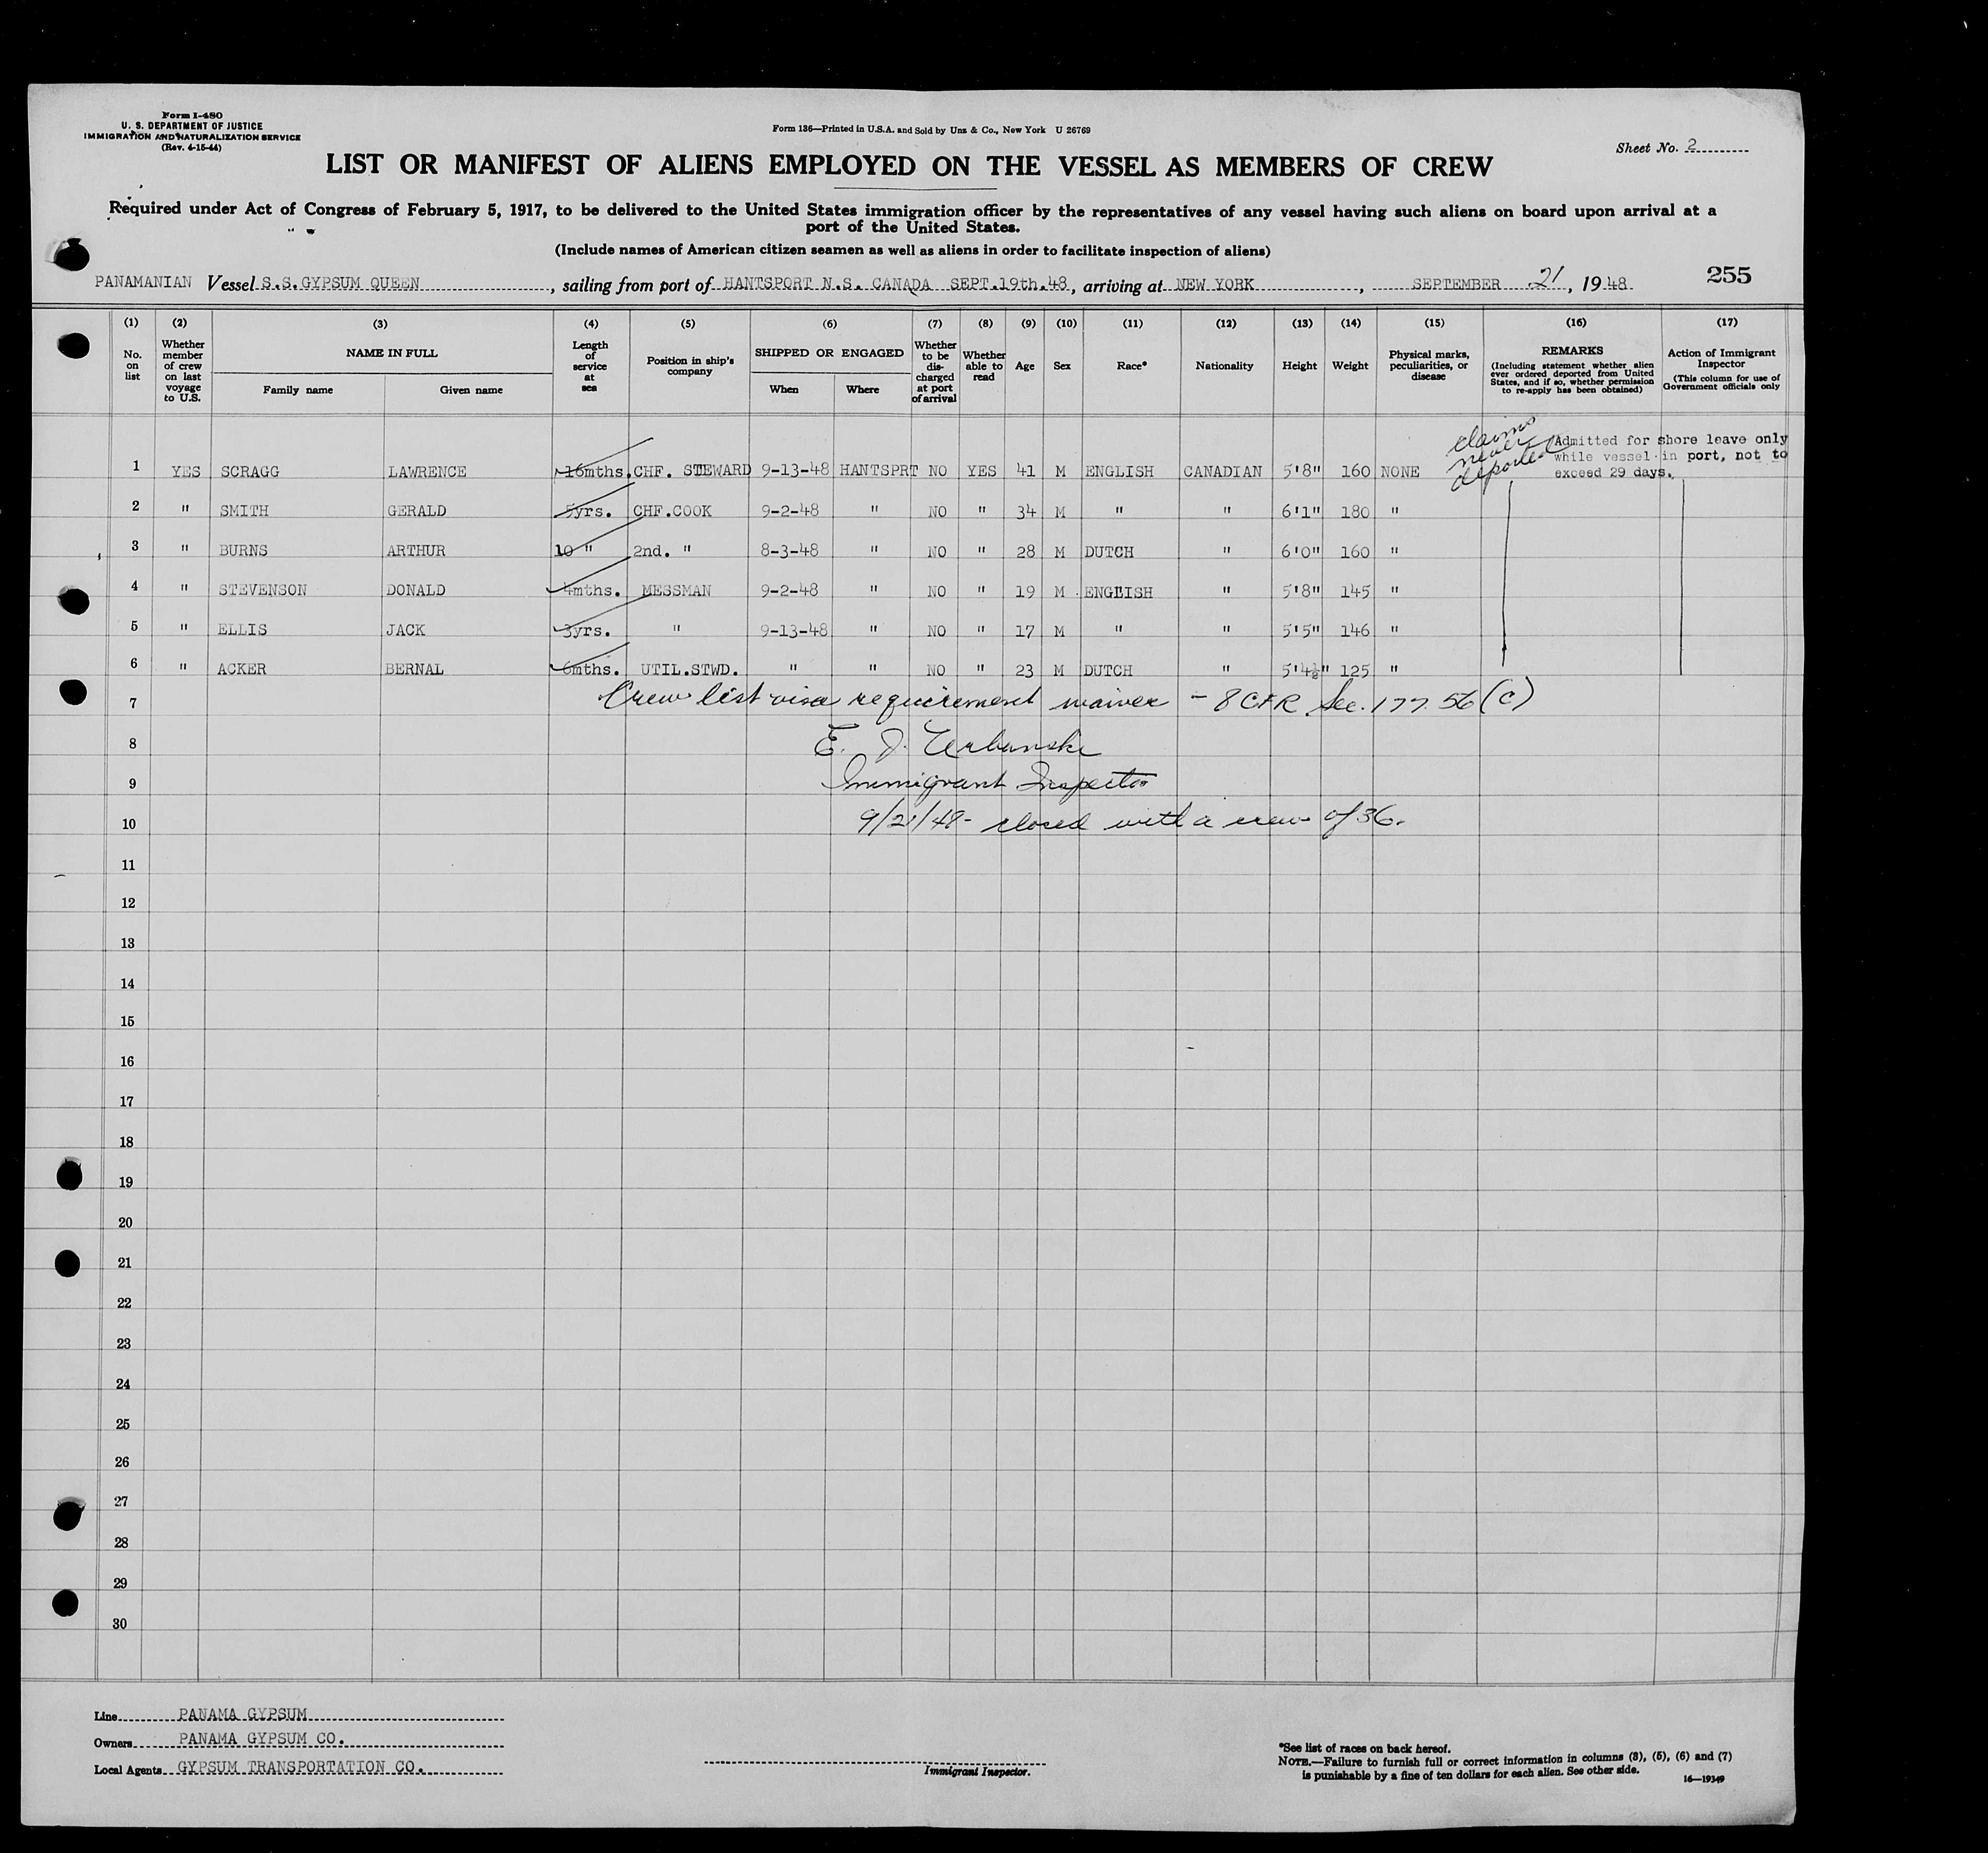 Form I-480
U. S. DEPARTMENT OF JUSTICE
IMMIGRATION AND NATURALIZATION SERVICE
(Rev. 4-15-44)
Form 136—Printed in U.S.A. and Sold by Unz & Co., New York U 26769
Sheet No. 2
LIST OR MANIFEST OF ALIENS EMPLOYED ON THE VESSEL AS MEMBERS OF CREW
Required under Act of Congress of February 5, 1917, to be delivered to the United States immigration officer by the representatives of any vessel having such aliens on board upon arrival at a
port of the United States.
(Include names of American citizen seamen as well as aliens in order to facilitate inspection of aliens)
PANAMANIAN Vessel S.S. GYPSUM QUEEN, sailing from port of HANTSPORT N.S. CANADA SEPT.19th.48, arriving at NEW YORK, SEPTEMBER 21, 1948 255
(1) (2) (3) (4) (5) (6) (7) (8) (9) (10) (11) (12) (13) (14) (15) (16) (17)
No. on list
Whether member of crew on last voyage to U.S.
NAME IN FULL
Family name
Given name
Length of service at sea
Position in ship's company
SHIPPED OR ENGAGED
When
Where
Whether to be discharged at port of arrival
Whether able to read
Age
Sex
Race*
Nationality
Height
Weight
Physical marks, peculiarities, or disease
REMARKS
(Including statement whether alien ever ordered deported from United States, and if so, whether permission to re-apply has been obtained)
Action of Immigrant Inspector
(This column for use of Government officials only
claims never deported
Admitted for shore leave only
while vessel in port, not to
exceed 29 days.
1 YES SCRAGG LAWRENCE 16mths. CHF. STEWARD 9-13-48 HANTSPRT NO YES 41 M ENGLISH CANADIAN 5'8" 160 NONE
2 " SMITH GERALD 5yrs. CHF.COOK 9-2-48 " NO " 34 M " " 6'1" 180 "
3 " BURNS ARTHUR 10 " 2nd. " 8-3-48 " NO " 28 M DUTCH " 6'0" 160 "
4 " STEVENSON DONALD 4mths. MESSMAN 9-2-48 " NO " 19 M ENGLISH " 5'8" 145 "
5 " ELLIS JACK 3yrs. " 9-13-48 " NO " 17 M " " 5'5" 146 "
6 " ACKER BERNAL 6mths. UTIL.STWD. " " NO " 23 M DUTCH " 5'4½" 125 "
7 Crew list visa requirement waiver - 8 CFR Sec. 177.56 (c)
8 E. J. Urbanski
9 Immigrant Inspector
10 9/21/48 - closed with a crew of 36.
11
12
13
14
15
16
17
18
19
20
21
22
23
24
25
26
27
28
29
30
Line PANAMA GYPSUM
Owners PANAMA GYPSUM CO.
Local Agents GYPSUM TRANSPORTATION CO.
Immigrant Inspector.
*See list of races on back hereof.
NOTE.—Failure to furnish full or correct information in columns (3), (5), (6) and (7)
is punishable by a fine of ten dollars for each alien. See other side.
16—19349